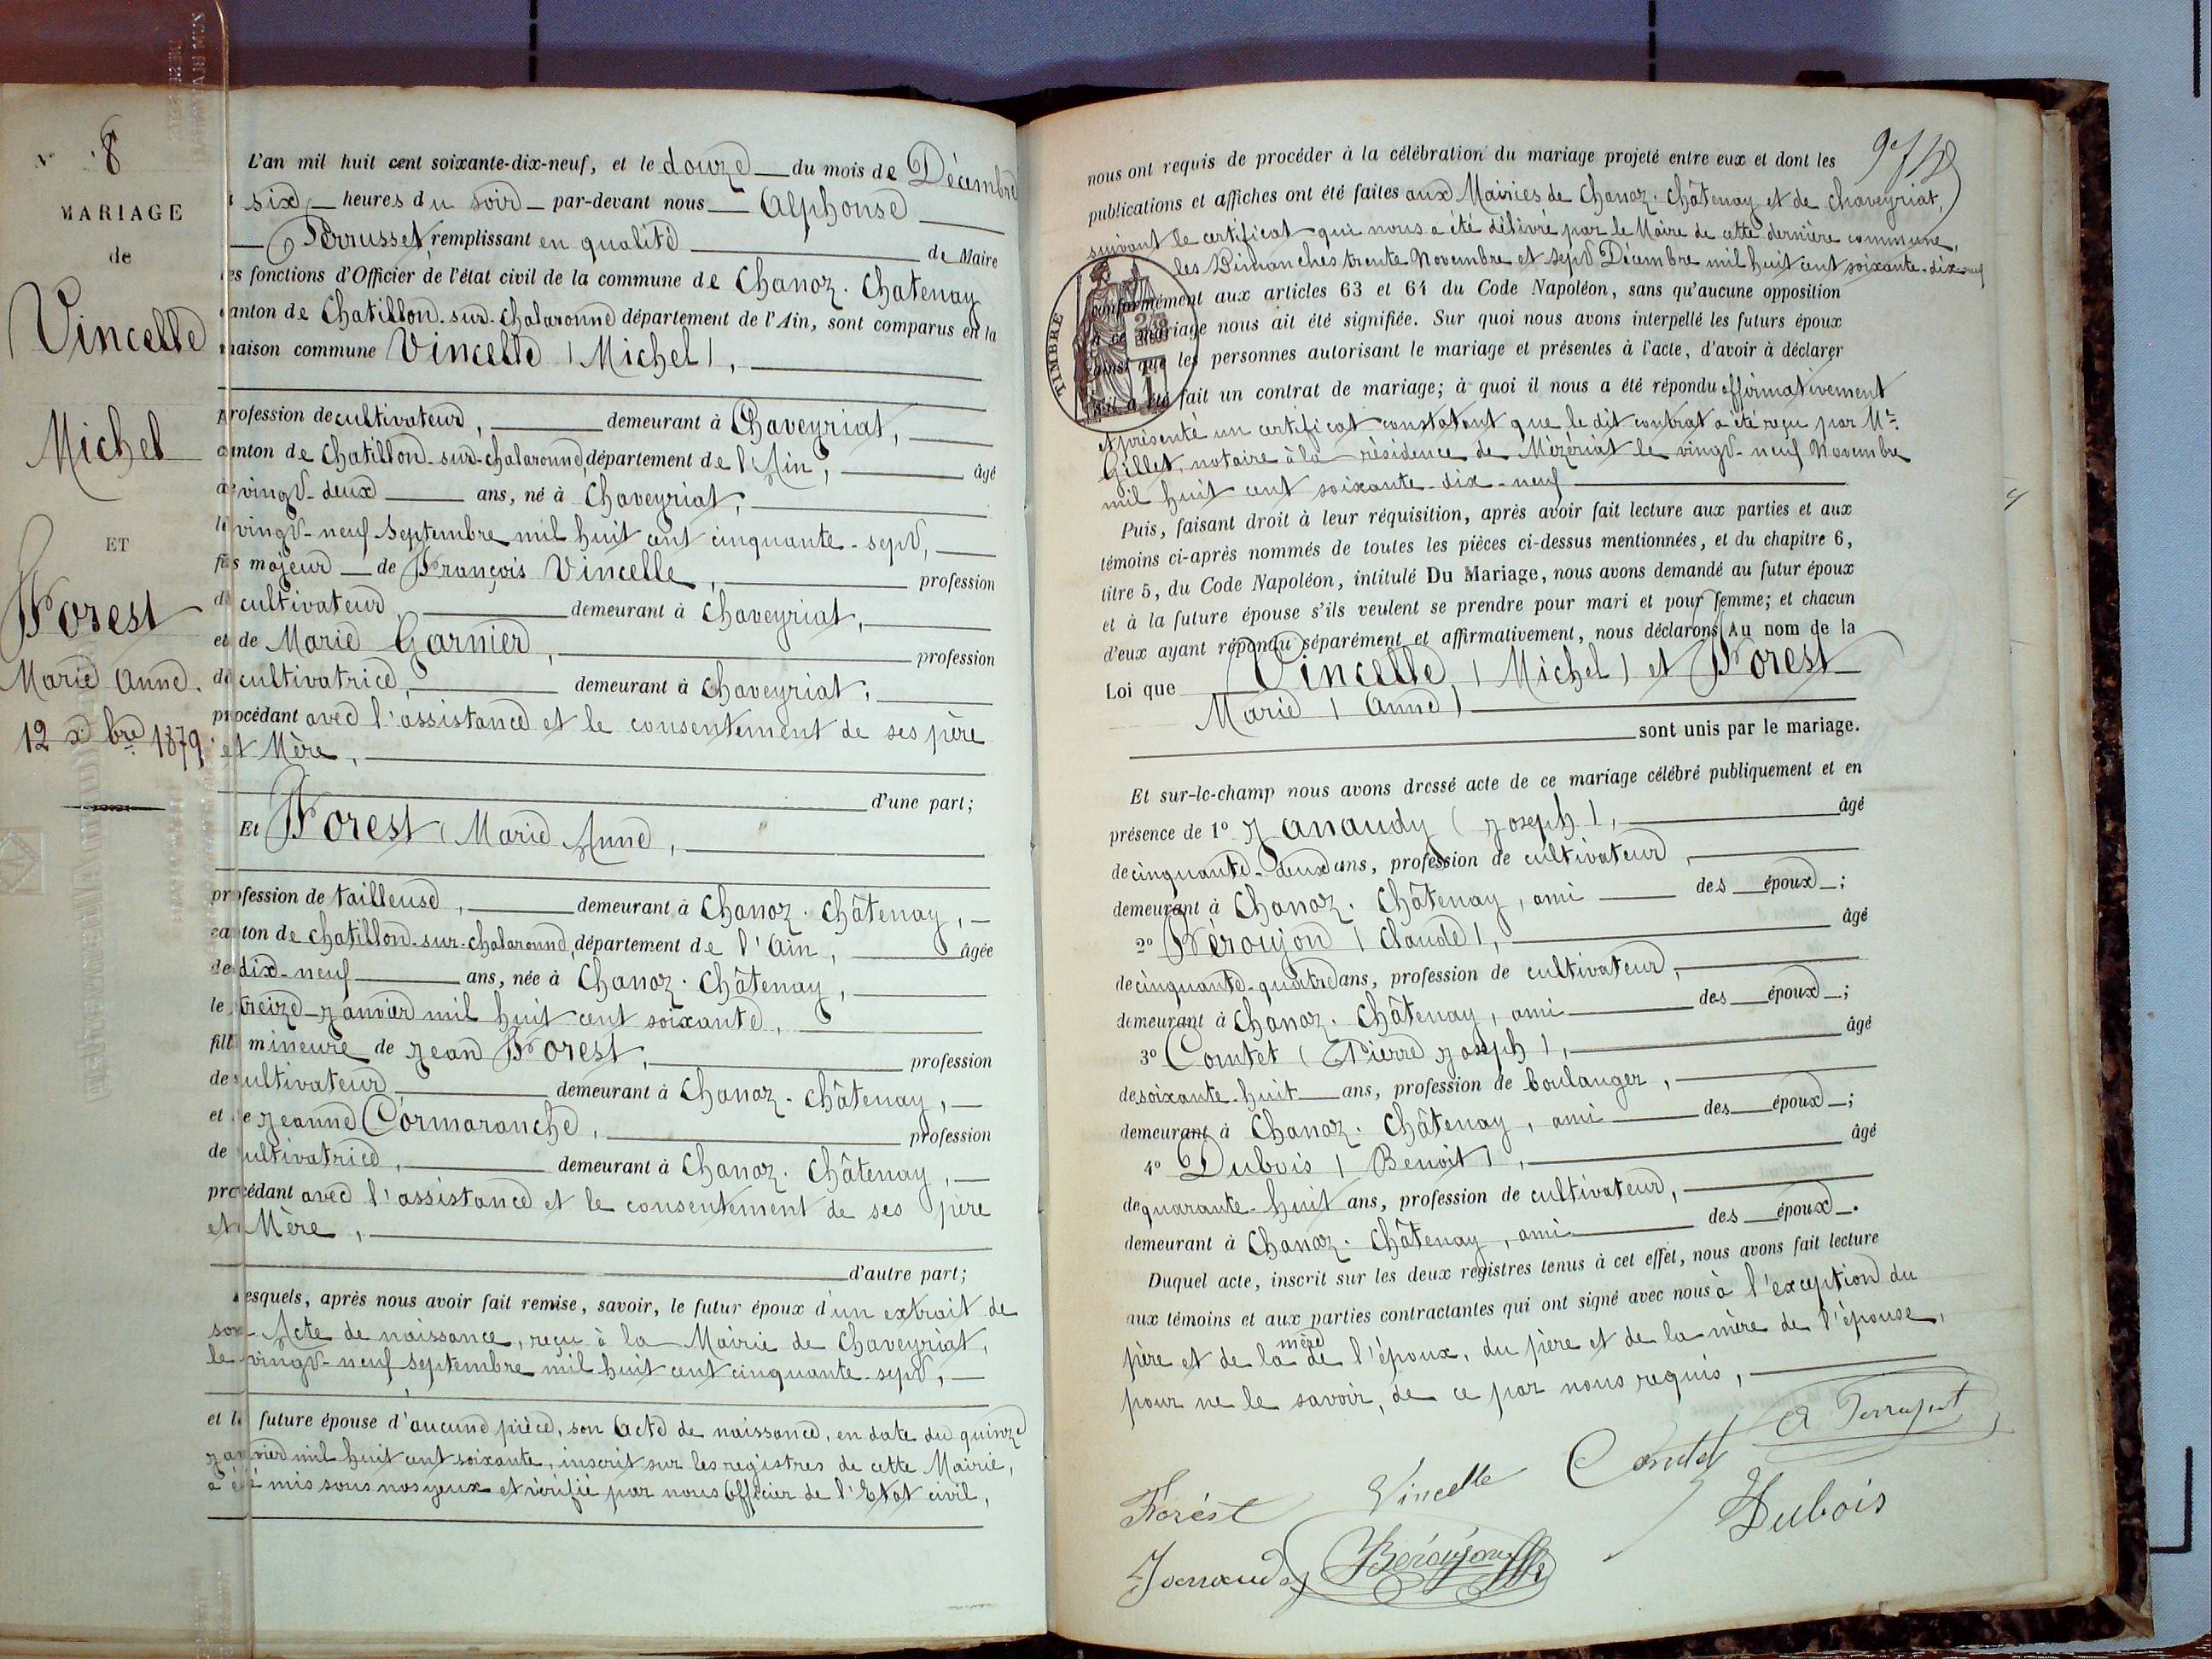 N° 8
MARIAGE
de
Vincelle
Michel
ET
Forest
Marie Anne.
12 xbre 1879.
L'an mil huit cent soixante-dix-neuf, et le douze du mois de Décembre
à six heures du soir par-devant nous Alphonse
Perrusset remplissant en qualité de Maire
les fonctions d'Officier de l'état civil de la commune de Chanoz-Chatenay
canton de Chatillon-sur-Chalaronne département de l'Ain, sont comparus en la
maison commune Vincelle (Michel),
profession de cultivateur, demeurant à Chaveyriat,
canton de Chatillon-sur-Chalaronne, département de l'Ain, âgé
de vingt-deux ans, né à Chaveyriat,
le vingt-neuf Septembre mil huit cent cinquante-sept,
fils majeur de François Vincelle, profession
de cultivateur demeurant à Chaveyriat,
et de Marie Garnier, profession
de cultivatrice, demeurant à Chaveyriat,
procédant avec l'assistance et le consentement de ses père
et Mère,
d'une part;
Et Forest (Marie Anne),
profession de tailleuse, demeurant à Chanoz-Châtenay,
canton de Chatillon-sur-Chalaronne, département de l'Ain, âgée
de dix-neuf ans, née à Chanoz-Châtenay,
le treize Janvier mil huit cent soixante,
fille mineure de Jean Forest, profession
de cultivateur demeurant à Chanoz-Châtenay,
et de Jeanne Cormaranche, profession
de cultivatrice, demeurant à Chanoz-Châtenay,
procédant avec l'assistance et le consentement de ses père
et Mère,
d'autre part;
Lesquels, après nous avoir fait remise, savoir, le futur époux d'un extrait de
son Acte de naissance, reçu à la Mairie de Chaveyriat,
le vingt-neuf septembre mil huit cent cinquante-sept,
et la future épouse d'aucune pièce, son Acte de naissance, en date du quinze
Janvier mil huit cent soixante, inscrit sur les registres de cette Mairie,
a été mis sous nos yeux et vérifié par nous Officier de l'Etat civil,
nous ont requis de procéder à la célébration du mariage projeté entre eux et dont les
publications et affiches ont été faites aux Mairies de Chanoz-Châtenay et de Chaveyriat,
suivant le certificat qui nous a été délivré par le Maire de cette dernière commune,
les Dimanches trente Novembre et sept Décembre mil huit cent soixante-dix-neuf
conformément aux articles 63 et 64 du Code Napoléon, sans qu'aucune opposition
à ce mariage nous ait été signifiée. Sur quoi nous avons interpellé les futurs époux
ainsi que les personnes autorisant le mariage et présentes à l'acte, d'avoir à déclarer
s'il a été fait un contrat de mariage; à quoi il nous a été répondu affirmativement
TIMBRE
et présenté un certificat constatant que le dit contrat a été reçu par Mr
Gillet, notaire à la résidence de Mézériat le vingt-neuf Novembre
mil huit cent soixante-dix-neuf
Puis, faisant droit à leur réquisition, après avoir fait lecture aux parties et aux
témoins ci-après nommés de toutes les pièces ci-dessus mentionnées, et du chapitre 6,
titre 5, du Code Napoléon, intitulé Du Mariage, nous avons demandé au futur époux
et à la future épouse s'ils veulent se prendre pour mari et pour femme; et chacun
d'eux ayant répondu séparément et affirmativement, nous déclarons Au nom de la
Loi que Vincelle (Michel) et Forest
Marie (Anne)
sont unis par le mariage.
Et sur-le-champ nous avons dressé acte de ce mariage célébré publiquement et en
présence de 1° Janaudy (Joseph), âgé
de cinquante-deux ans, profession de cultivateur,
demeurant à Chanoz-Châtenay, ami des époux;
2° Béroujon (Claude), âgé
de cinquante-quatre ans, profession de cultivateur,
demeurant à Chanoz-Châtenay, ami des époux;
3° Comtet (Pierre Joseph), âgé
de soixante-huit ans, profession de boulanger,
demeurant à Chanoz-Châtenay, ami des époux;
4° Dubois (Benoit), âgé
de quarante-huit ans, profession de cultivateur,
demeurant à Chanoz-Châtenay, ami des époux.
Duquel acte, inscrit sur les deux registres tenus à cet effet, nous avons fait lecture
aux témoins et aux parties contractantes qui ont signé avec nous à l'exception du
père et de la mère de l'époux, du père et de la mère de l'épouse,
pour ne le savoir, de ce par nous requis,
Comtet A Perrusset
Forést Vincelle Dubois
Janaudy Béroujon